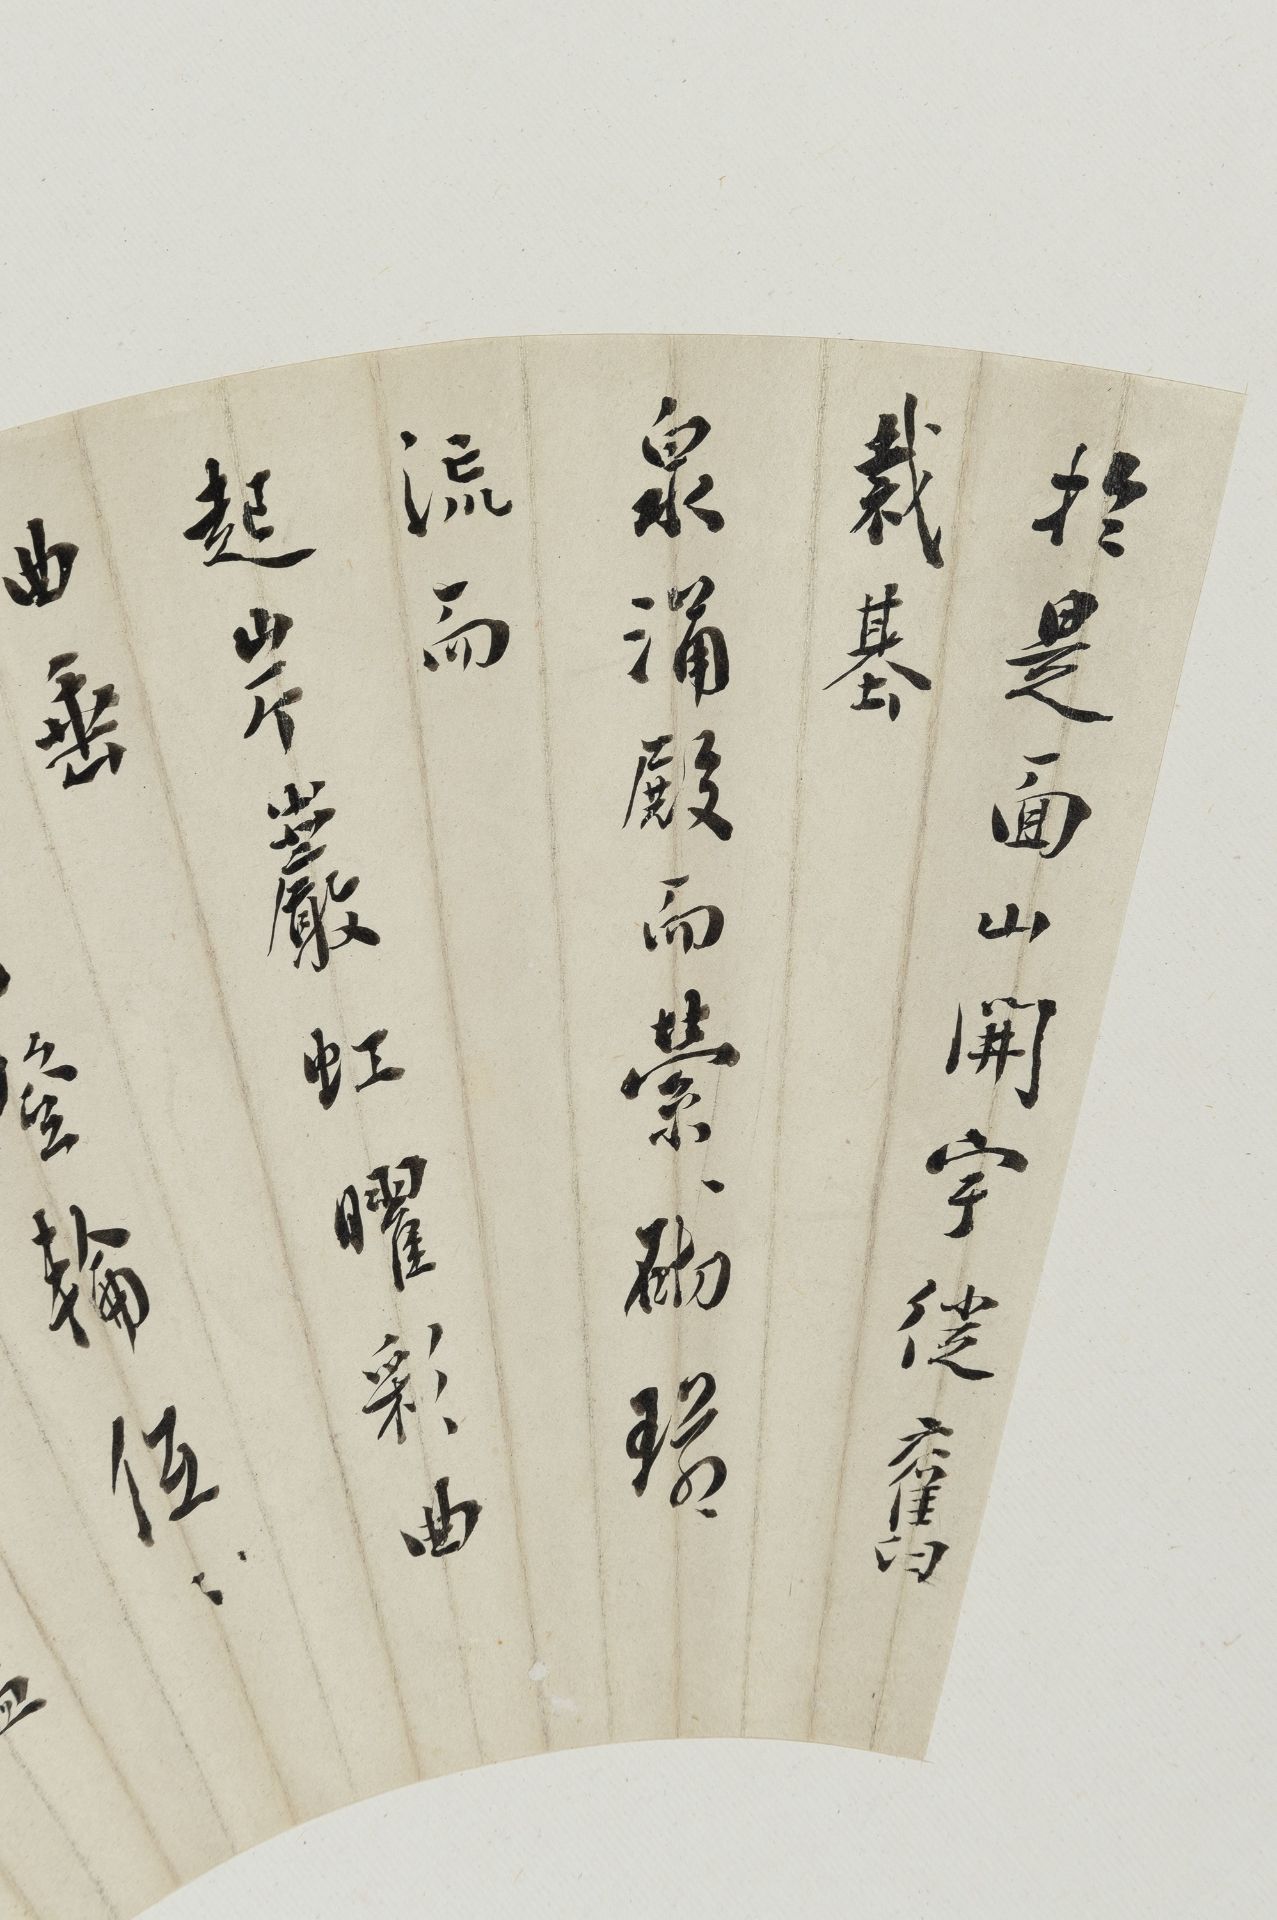 於是面山開宇從舊
裁基
泉涌殿而縈砌
流而
起岸巖虹曜彩曲
曲垂
輪伍